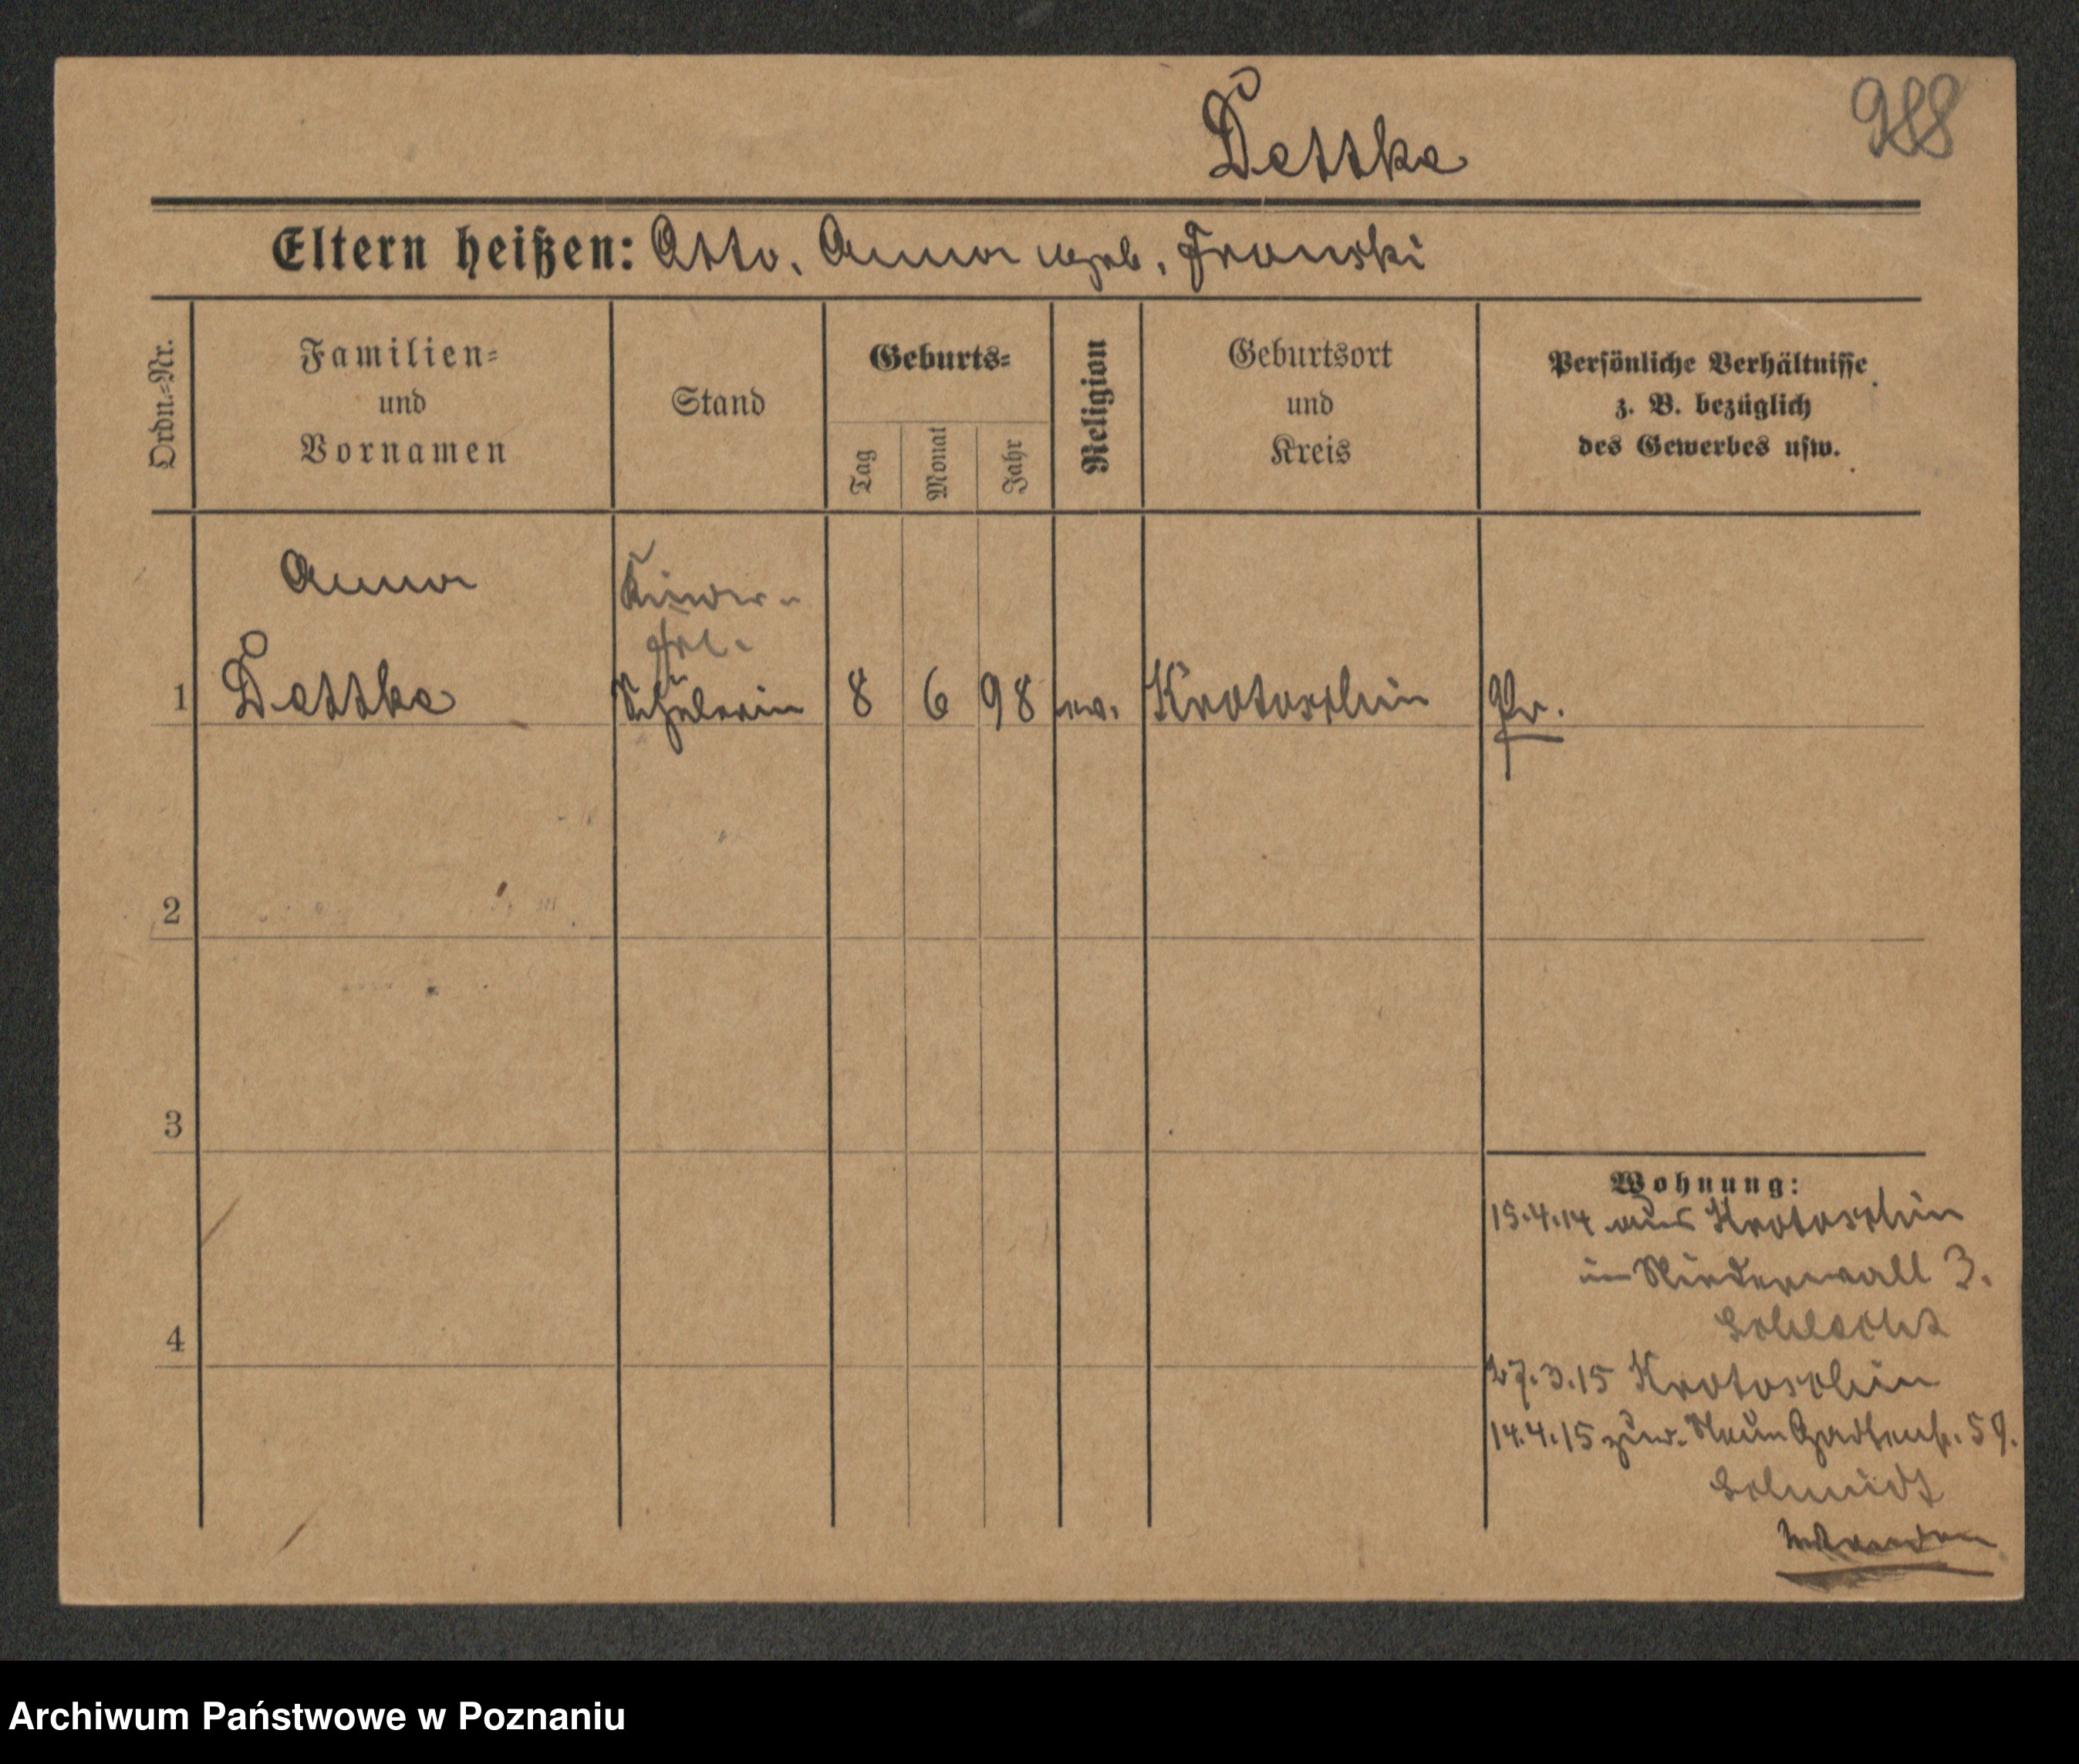 988
Dettke
Eltern heißen: Otto, Anna geb. Fronski
Ordn.=Nr.
Familien=
und
Vornamen
Stand
Geburts=
Tag
Monat
Jahr
Religion
Geburtsort
und
Kreis
Persönliche Verhältnisse
z. B. bezüglich
des Gewerbes usw.
Anna
Kinder-
frl.
1 Dettke Schülerin 8 6 98 ev. Krotoschin Pr.
2
3
4
Wohnung:
15.4.14 aus Krotoschin
Niederwall 3.
27.3.15 Krotoschin
14.4.15 Gartenstr. 59.
Schmidt